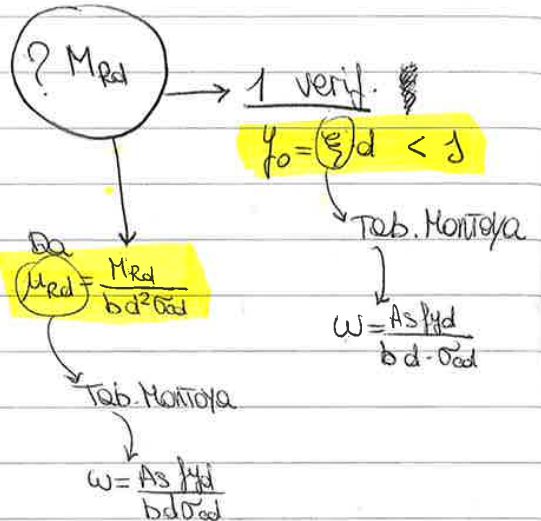 ? M_Rd
1 verif.
y_o = ξ d < s
Tab. Montoya
ω = As fyd / b d · σcd
Da
μ_Rd = M_Rd / b d² σcd
Tab. Montoya
ω = As fyd / b d σcd